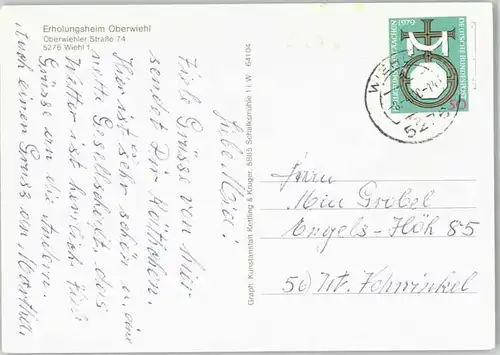 Erholungsheim Oberwiehl
Oberwiehler Straße 74
5276 Wiehl 1
Liebe
Viele Grüsse von hier
sendet Dir Käthchen.
Hier ist es sehr schön u. eine
nette Gesellschaft, das
Wetter ist herrlich. Viele
Grüsse an die andern.
Auch einen Gruss an Martha
Graph. Kunstanstalt Kettling & Krüger, 5885 Schalksmühle i. W. 64104
1979
DEUTSCHE BUNDESPOST
50
5276
Herrn
Grobel
Engels-Höh 85
56 W. Vohwinkel